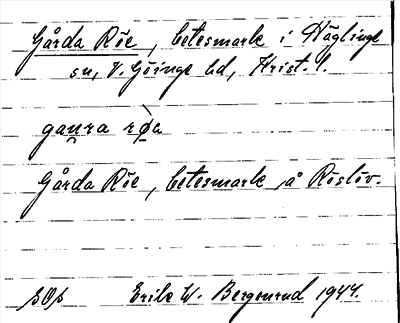 Gårda Röe, betesmark i Häglinge
sn, V. Göinge hd, Krist. l.
gaura røa
Gårda Röe, betesmark å Röslöv.
Erik W. Bergonrud 1944.